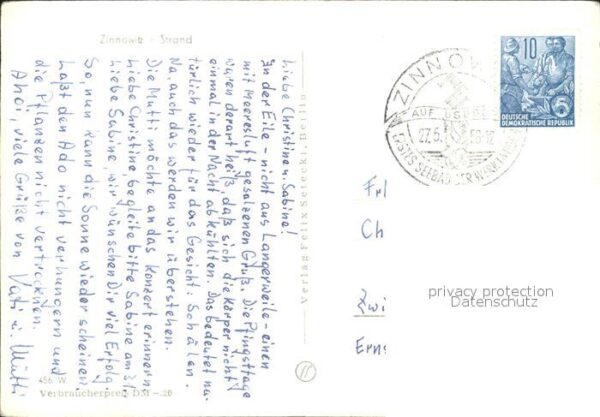 Zinnowitz - Strand
Liebe Christine u. Sabine!
In der Eile - nicht aus Langerweile - einen
mit Meeresluft gesalzenen Gruß. Die Pfingsttage
waren derart heiß, daß sich die Körper nicht
einmal in der Nacht abkühlten. Das bedeutet na-
türlich wieder für das Gesicht: Schälen.
Na, auch das werden wir überstehen.
Die Mutti möchte an das Konzert erinnern
Liebe Christine begleite bitte Sabine am 31.
Liebe Sabine, wir wünschen Dir viel Erfolg.
So, nun kann die Sonne wieder scheinen.
Laßt den Ado nicht verhungern und
die Pflanzen nicht vertrocknen.
Ahoi, viele Grüße von Vati u. Mutti
456 W
Verbraucherpreis DM -.20
ZINNOW
AUF USEDOM
27.5. 58-12
10
DEUTSCHE
DEMOKRATISCHE REPUBLIK
Frl
Ch
Zwi
Erns
privacy protection
Datenschutz